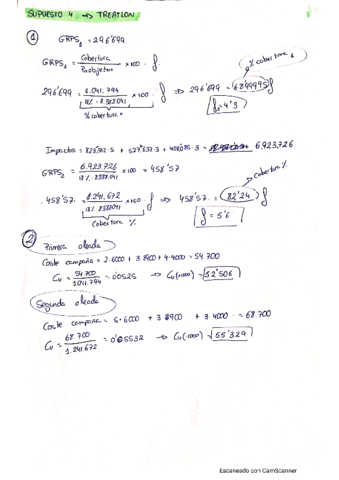 SUPUESTO 4 → TREATLON
①
GRPS₁ = 296'699
GRPS₁ = Cobertura / Pobjetivo × 100 · f
% cobertura
296'699 = 1.041.794 / 18% · 8.388.041 × 100 · f ⇒ 296'699 = 68'99995 f
% cobertura
f = 4'3
Impactos = · 5 + · 3 + · 3 = 6.923.726
GRPS₂ = 6.923.726 / 18% · 8388041 × 100 = 458'57
Cobertura %
458'57 = 1.241.672 / 18% · 8388041 × 100 · f ⇒ 458'57 = 82'24 f
Cobertura %
f = 5'6
②
Primera oleada
Coste campaña = 2·6000 + 3·8900 + 4·4000 = 54 700
Cu = 54 700 / 1.041.794 = 0'0525 → Cu (×1000) = 52'506
Segunda oleada
Coste campaña = 5·6000 + 3·8900 + 3·4000 = 68 700
Cu = 68 700 / 1.241.672 = 0'05532 → Cu (·1000) = 55'329
Escaneado con CamScanner